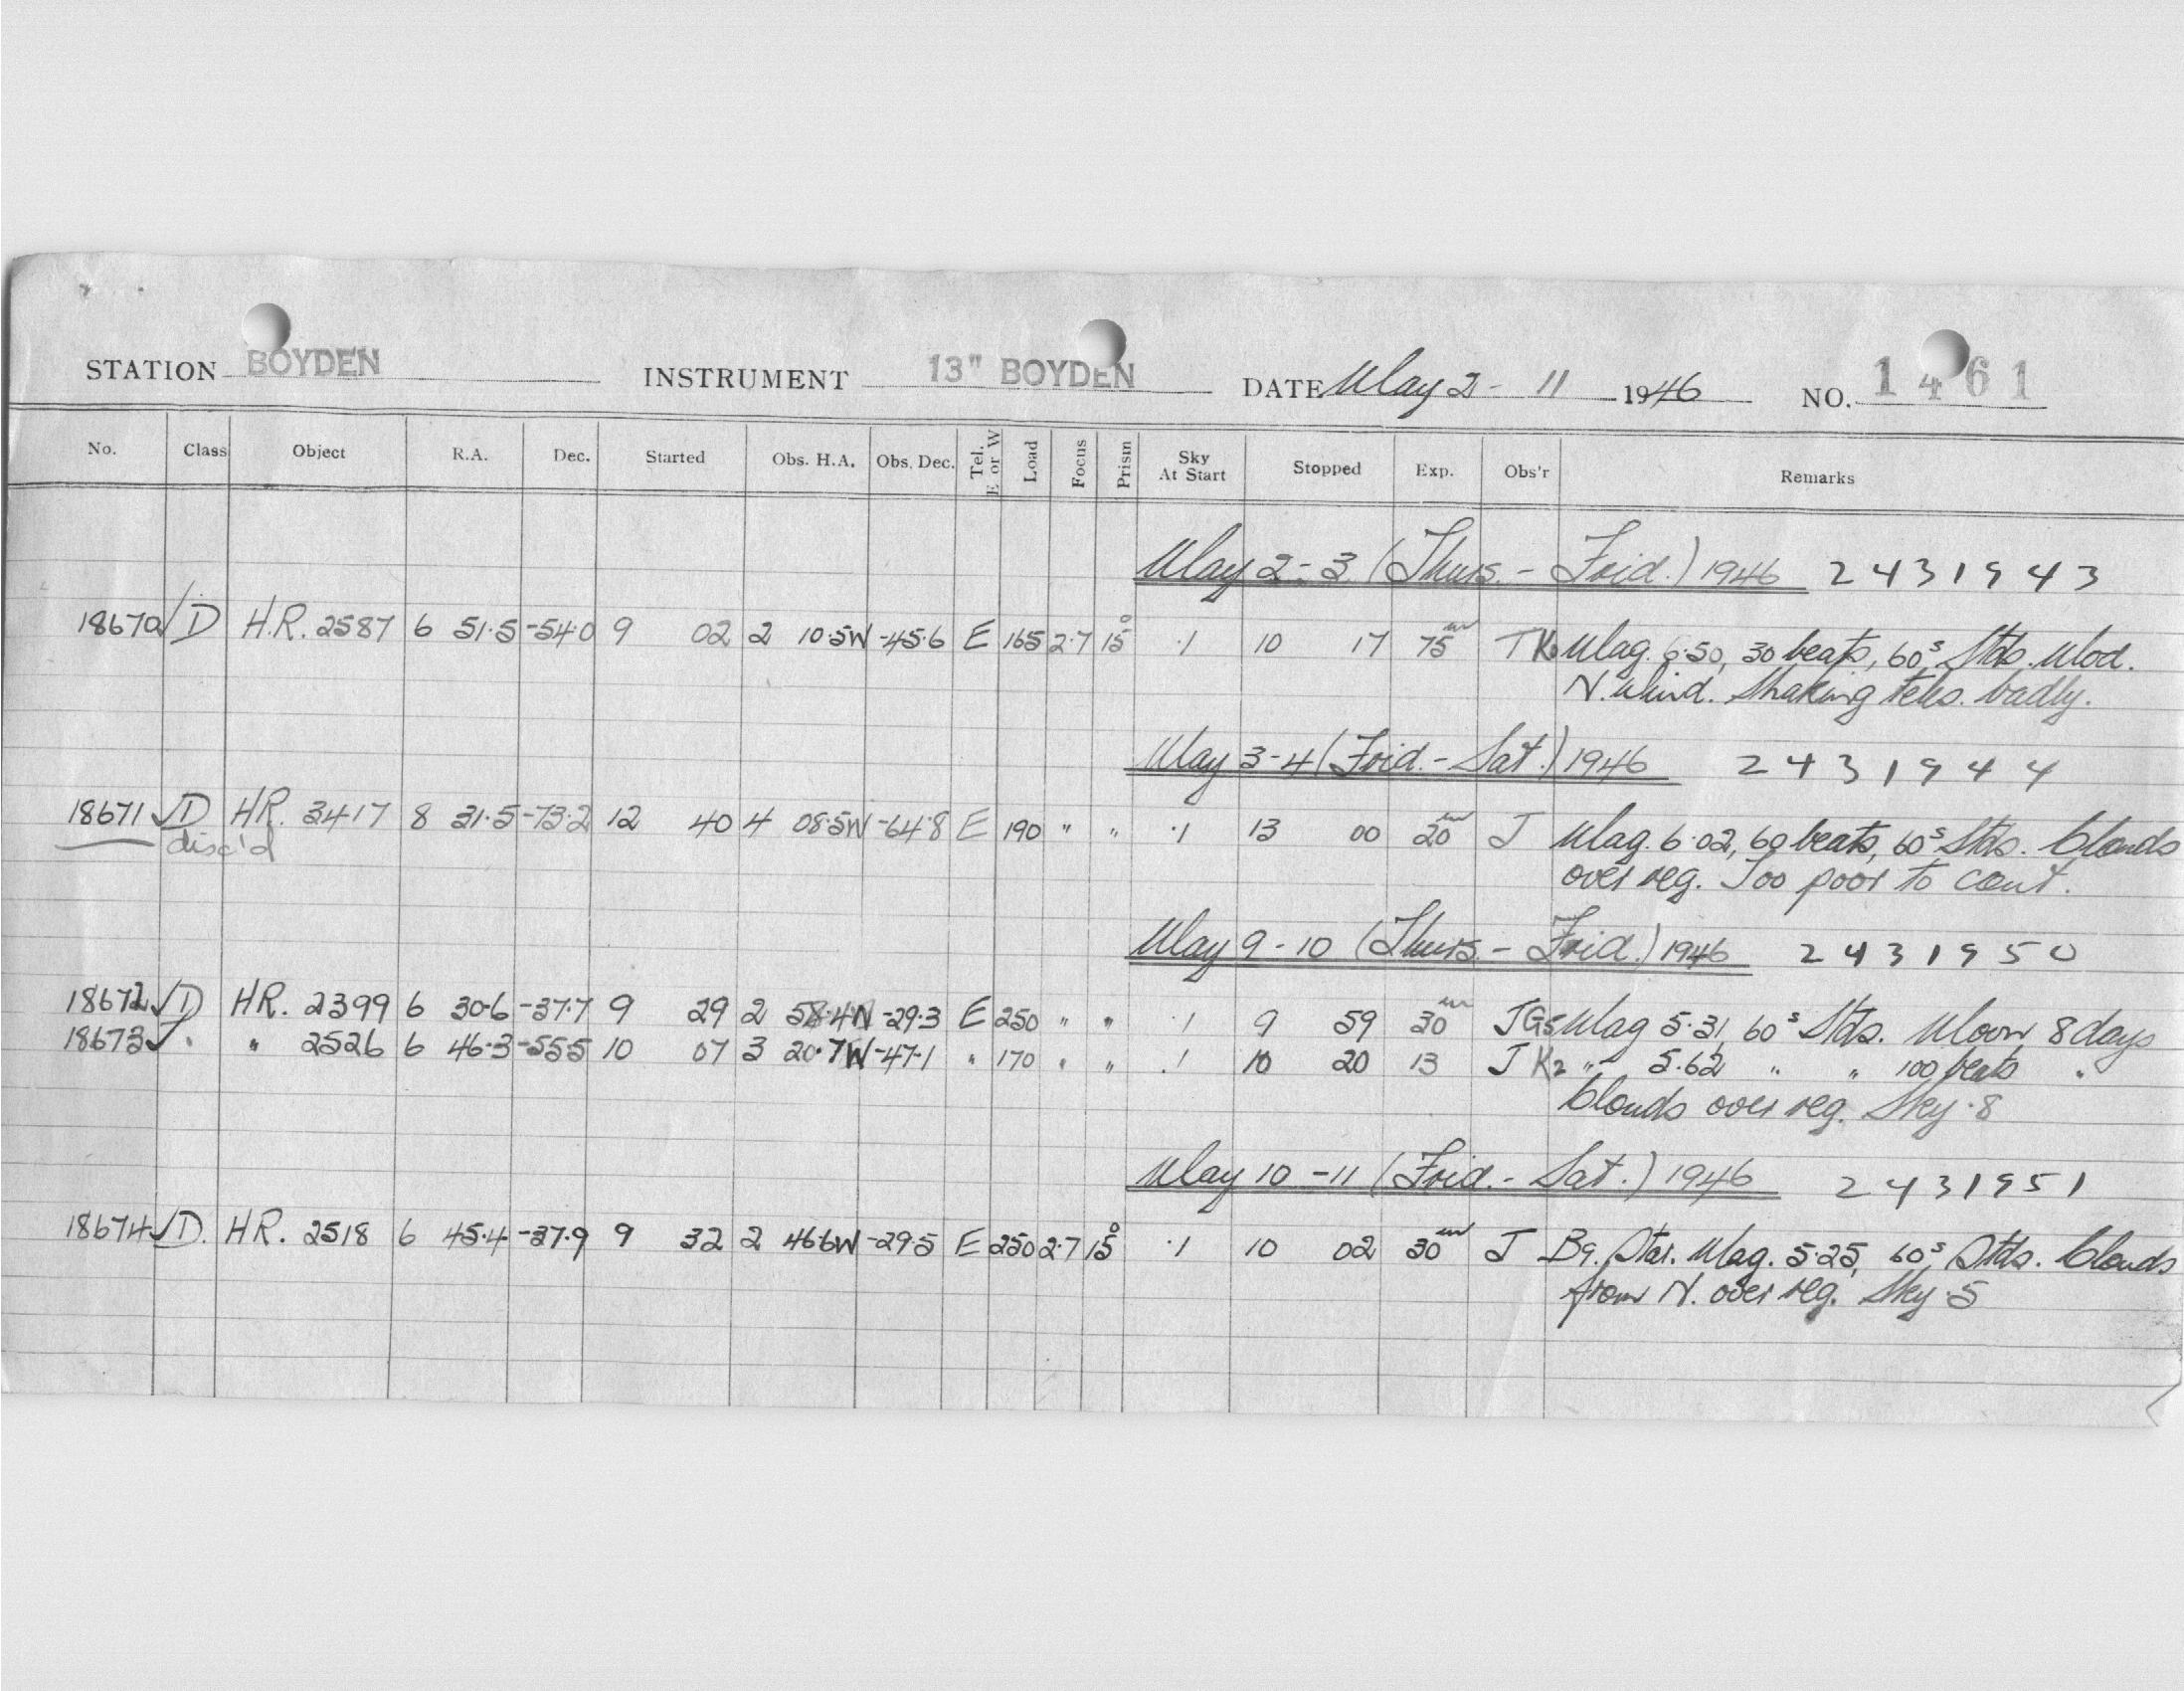 STATION BOYDEN INSTRUMENT 13" BOYDEN DATE May 2 - 11 1946 NO. 1461
No. Class Object R.A. Dec. Started Obs. H.A. Obs. Dec. Tel. E or W Load Focus Prism Sky At Start Stopped Exp. Obs'r Remarks
May 2-3 (Thurs. - Frid.) 1946 2431943
18670 √ D H.R. 2587 6 51.5 -54.0 9 02 2 10.5W -45.6 E 165 2.7 15° .1 10 17 75m J K0 Mag. 6.50, 30 beats, 60s Stds. Mod.
N. Wind. Shaking teles. badly.
May 3-4 (Frid. - Sat.) 1946 2431944
18671 √ D HR. 3417 8 31.5 -73.2 12 40 4 08.5W -64.8 E 190 " " .1 13 00 20m J Mag. 6.02, 60 beats, 60s Stds. Clouds
disc'd over reg. Too poor to cont.
May 9-10 (Thurs. - Frid.) 1946 2431950
18672 √ D HR. 2399 6 30.6 -37.7 9 29 2 58.4W -29.3 E 250 " " .1 9 59 30m J G5 Mag 5.31, 60s Stds. Moon 8 days
18673 √ . " 2526 6 46.3 -55.5 10 07 3 20.7W -47.1 " 170 " " .1 10 20 13 J K2 " 5.62 " " 100 beats "
Clouds over reg. Sky .8
May 10-11 (Frid. - Sat.) 1946 2431951
18674 √ D. HR. 2518 6 45.4 -37.9 9 32 2 46.6W -29.5 E 250 2.7 15° .1 10 02 30m J B9. Star. Mag. 5.25, 60s Stds. Clouds
from N. over reg. Sky .5